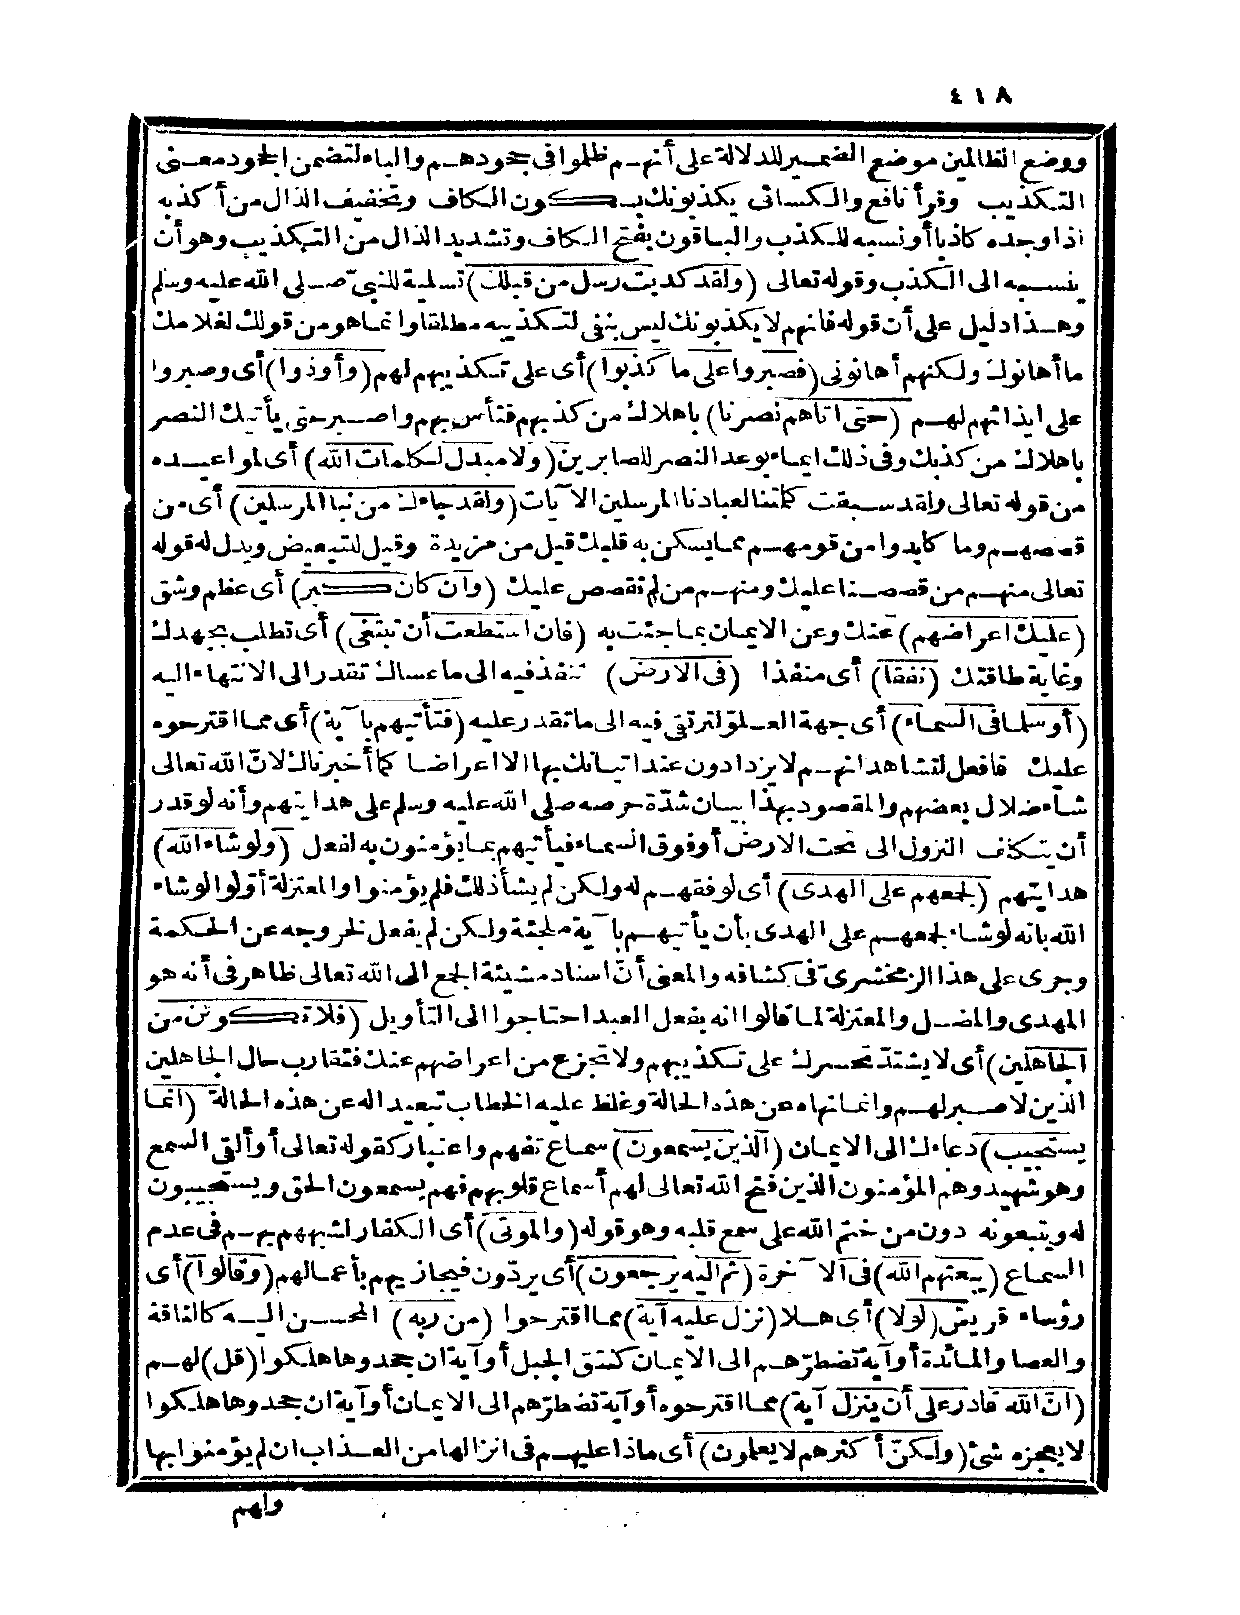 ٤١٨
ووضع الظالمين موضع الضمير للدلالة على أنهم ظلموا فى جحودهم والباء لتضمن الجحود معنى
التكذيب وقرأ نافع والكسائى يكذبونك بسكون الكاف وتخفيف الذال من أكذبه
اذا وجده كاذبا أو نسبه للكذب والباقون بفتح الكاف وتشديد الذال من التكذيب وهو أن
ينسبه الى الكذب وقوله تعالى (ولقد كذبت رسل من قبلك) تسلية للنبى صلى الله عليه وسلم
وهذا دليل على أن قوله فانهم لا يكذبونك ليس بنفى لتكذيبه مطلقا وانما هو من قولك لغلامك
ما أهانوك ولكنهم أهانونى (فصبروا على ما كذبوا) أى على تكذيبهم لهم (وأوذوا) أى وصبروا
على ايذائهم لهم (حتى أتاهم نصرنا) باهلاك من كذبهم فتأس بهم واصبر حتى يأتيك النصر
باهلاك من كذبك وفى ذلك ايماء بوعد النصر للصابرين (ولا مبدل لكلمات الله) أى لمواعيده
من قوله تعالى ولقد سبقت كلمتنا لعبادنا المرسلين الآيات (ولقد جاءك من نبا المرسلين) أى من
قصصهم وما كابدوا من قومهم مما يسكن به قلبك قيل من مزيدة وقيل للتبعيض ويدل له قوله
تعالى منهم من قصصنا عليك ومنهم من لم نقصص عليك (وان كان كبر) أى عظم وشق
(عليك اعراضهم) عنك وعن الايمان بما جئت به (فان استطعت أن تبتغى) أى تطلب بجهدك
وغاية طاقتك (نفقا) أى منفذا (فى الارض) تنفذ فيه الى ما عساك تقدر الى الانتهاء اليه
(أو سلما فى السماء) أى جهة العلو لترتقى فيه الى ما تقدر عليه (فتأتيهم بآية) أى مما اقترحوه
عليك فافعل لتشاهد انهم لا يزدادون عند اتيانك بها الا اعراضا كما أخبرناك لانّ الله تعالى
شاء ضلال بعضهم والمقصود بهذا بيان شدّة حرصه صلى الله عليه وسلم على هدايتهم وأنه لو قدر
أن يتكلف النزول الى تحت الارض أو فوق السماء فيأتيهم بما يؤمنون به لفعل (ولو شاء الله)
هدايتهم (لجمعهم على الهدى) أى لوفقهم له ولكن لم يشأ ذلك فلم يؤمنوا والمعتزلة أوّلوا لو شاء
الله بانه لو شاء لجمعهم على الهدى بأن يأتيهم بآية ملجئة ولكن لم يفعل لخروجه عن الحكمة
وجرى على هذا الزمخشرى فى كشافه والمعنى أنّ اسناد مشيئة الجمع الى الله تعالى ظاهر فى أنه هو
المهدى والمضل والمعتزلة لما قالوا انه بفعل العبد احتاجوا الى التأويل (فلا تكونن من
الجاهلين) أى لا يشتدّ تحسرك على تكذيبهم ولا تجزع من اعراضهم عنك فتقارب حال الجاهلين
الذين لا صبر لهم وانما نهاه عن هذه الحالة وغلظ عليه الخطاب تبعيدا له عن هذه الحالة (انما
يستجيب) دعاءك الى الايمان (الذين يسمعون) سماع تفهم واعتبار كقوله تعالى أو ألقى السمع
وهو شهيد وهم المؤمنون الذين فتح الله تعالى لهم أسماع قلوبهم فهم يسمعون الحق ويستجيبون
له ويتبعونه دون من ختم الله على سمع قلبه وهو قوله (والموتى) أى الكفار لشبههم بهم فى عدم
السماع (يبعثهم الله) فى الآخرة (ثم اليه يرجعون) أى يردّون فيجازيهم بأعمالهم (وقالوا) أى
رؤساء قريش (لولا) أى هلا (نزل عليه آية) مما اقترحوا (من ربه) المحسن اليه كالناقة
والعصا والمائدة أو آية تضطرّهم الى الايمان كنتق الجبل أو آية ان جحدوها هلكوا (قل) لهم
(انّ الله قادر على أن ينزل آية) مما اقترحوه أو آية تضطرّهم الى الايمان أو آية ان جحدوها هلكوا
لا يعجزه شئ (ولكنّ أكثرهم لا يعلمون) أى ماذا عليهم فى انزالها من العذاب ان لم يؤمنوا بها
ولهم